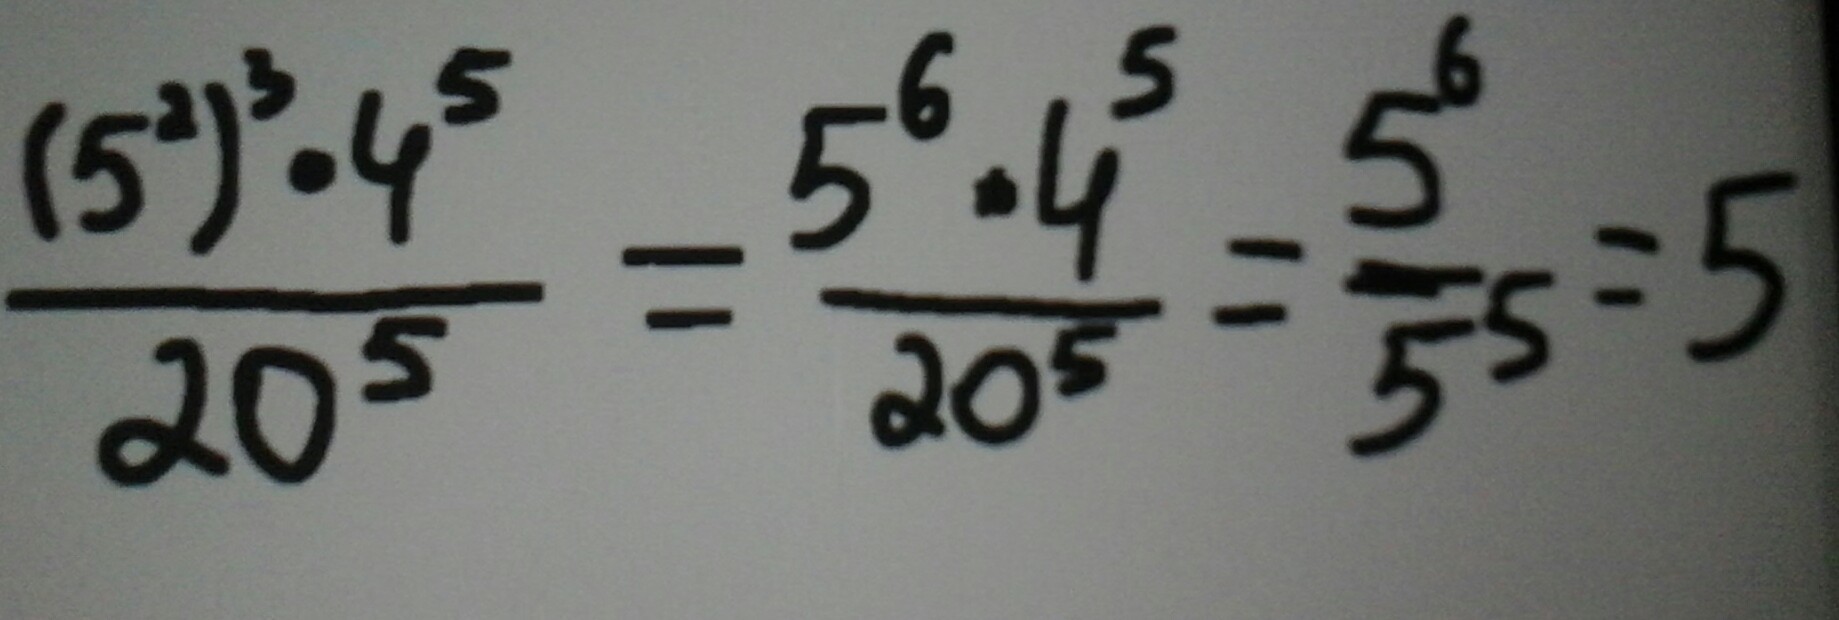 (5²)³·4⁵/20⁵ = 5⁶·4⁵/20⁵ = 5⁶/5⁵ = 5